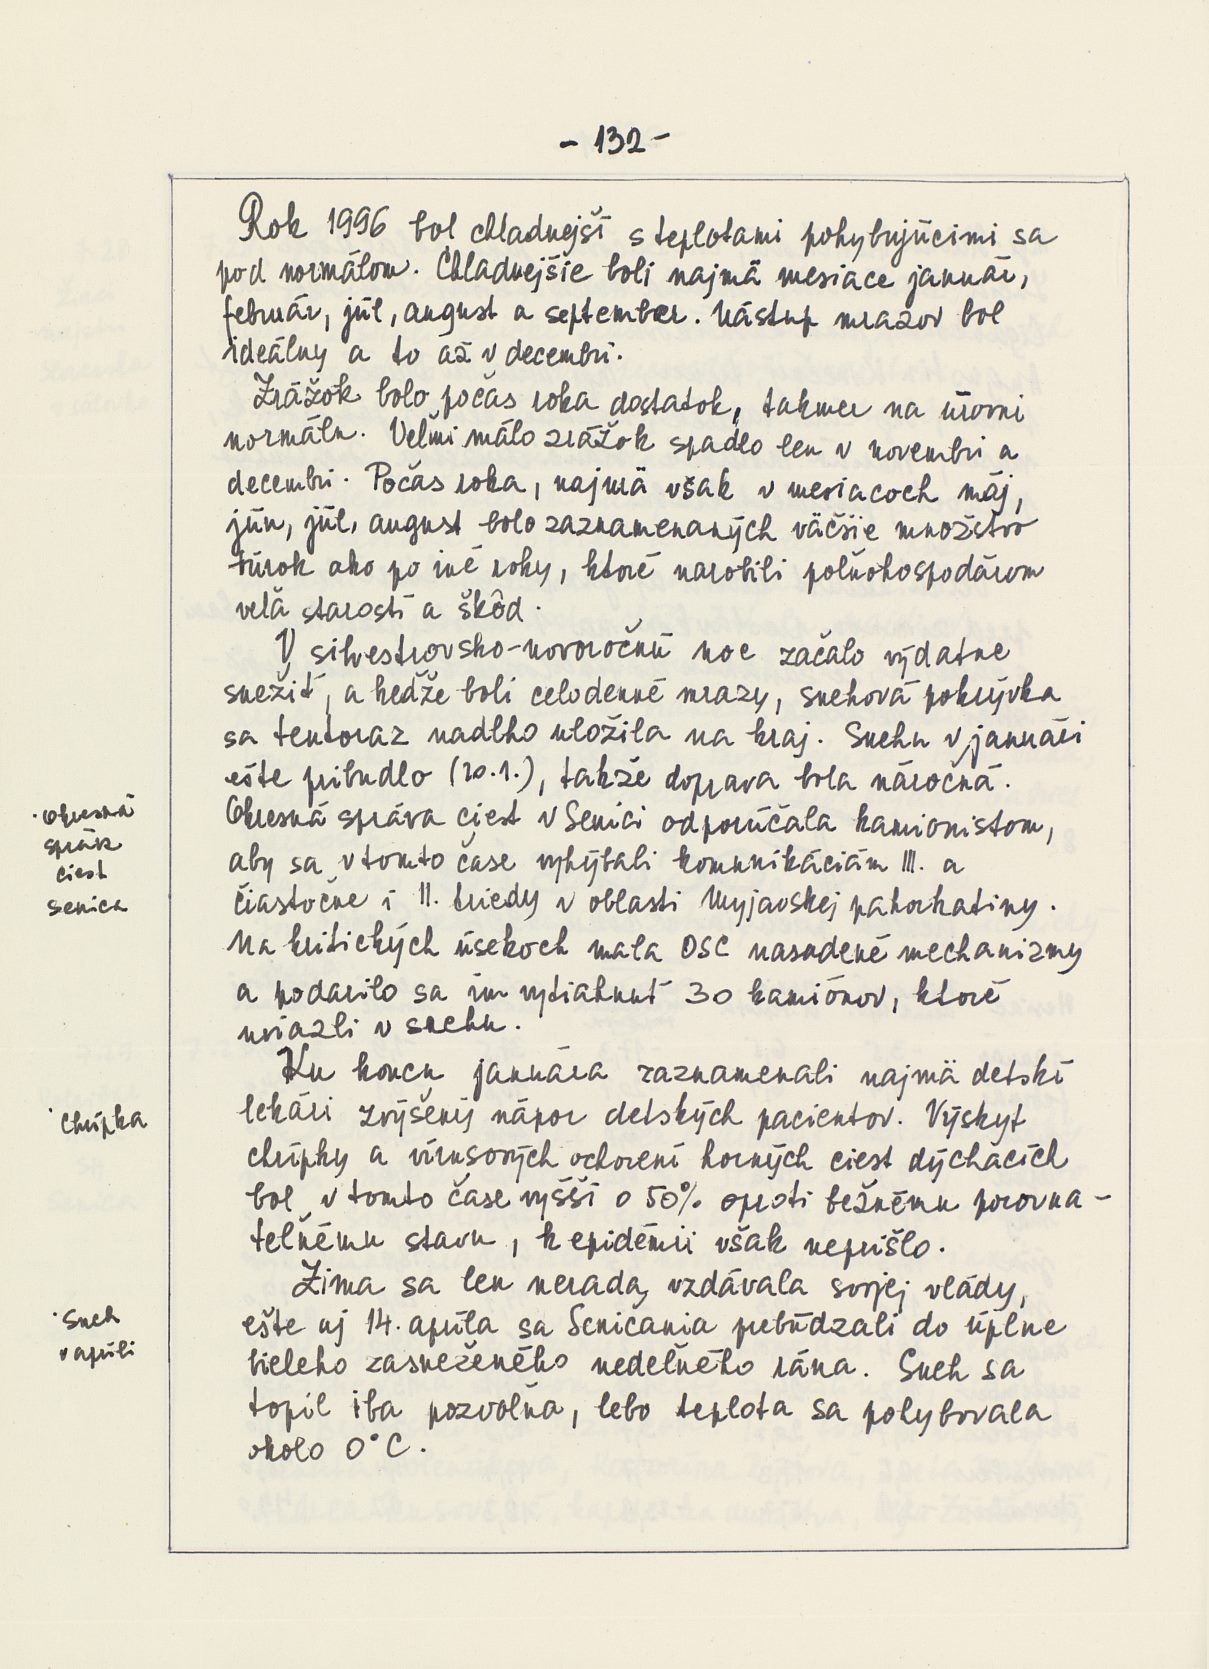 - 132 -
Rok 1996 bol chladnejší s teplotami pohybujúcimi sa
pod normálom. Chladnejšie boli najmä mesiace január,
február, júl, august a september. Nástup mrazov bol
ideálny a to až v decembri.
Zrážok bolo počas roka dostatok, takmer na úrovni
normálu. Veľmi málo zrážok spadlo len v novembri a
decembri. Počas roka, najmä však v mesiacoch máj,
jún, júl, august bolo zaznamenaných väčšie množstvo
búrok ako po iné roky, ktoré narobili poľnohospodárom
veľa starostí a škôd.
V silvestrovsko-novoročnú noc začalo výdatne
snežiť, a keďže boli celodenné mrazy, snehová pokrývka
sa tentoraz nadlho uložila na kraj. Snehu v januári
ešte pribudlo (20.1.), takže doprava bola náročná.
Okresná správa ciest v Senici odporúčala kamionistom,
aby sa v tomto čase vyhýbali komunikáciám III. a
čiastočne i II. triedy v oblasti Myjavskej pahorkatiny.
Na kritických úsekoch mala OSC nasadené mechanizmy
a podarilo sa im vytiahnuť 30 kamiónov, ktoré
uviazli v snehu.
Ku koncu januára zaznamenali najmä detskí
lekári zvýšený nápor detských pacientov. Výskyt
chrípky a vírusových ochorení horných ciest dýchacích
bol v tomto čase vyšší o 50% oproti bežnému porovna-
teľnému stavu, k epidémii však neprišlo.
Zima sa len nerada vzdávala svojej vlády,
ešte aj 14. apríla sa Seničania prebúdzali do úplne
bieleho zasneženého nedeľného rána. Sneh sa
topil iba pozvoľna, lebo teplota sa pohybovala
okolo 0°C.
Okresná
správa
ciest
Senica
Chrípka
Sneh
v apríli